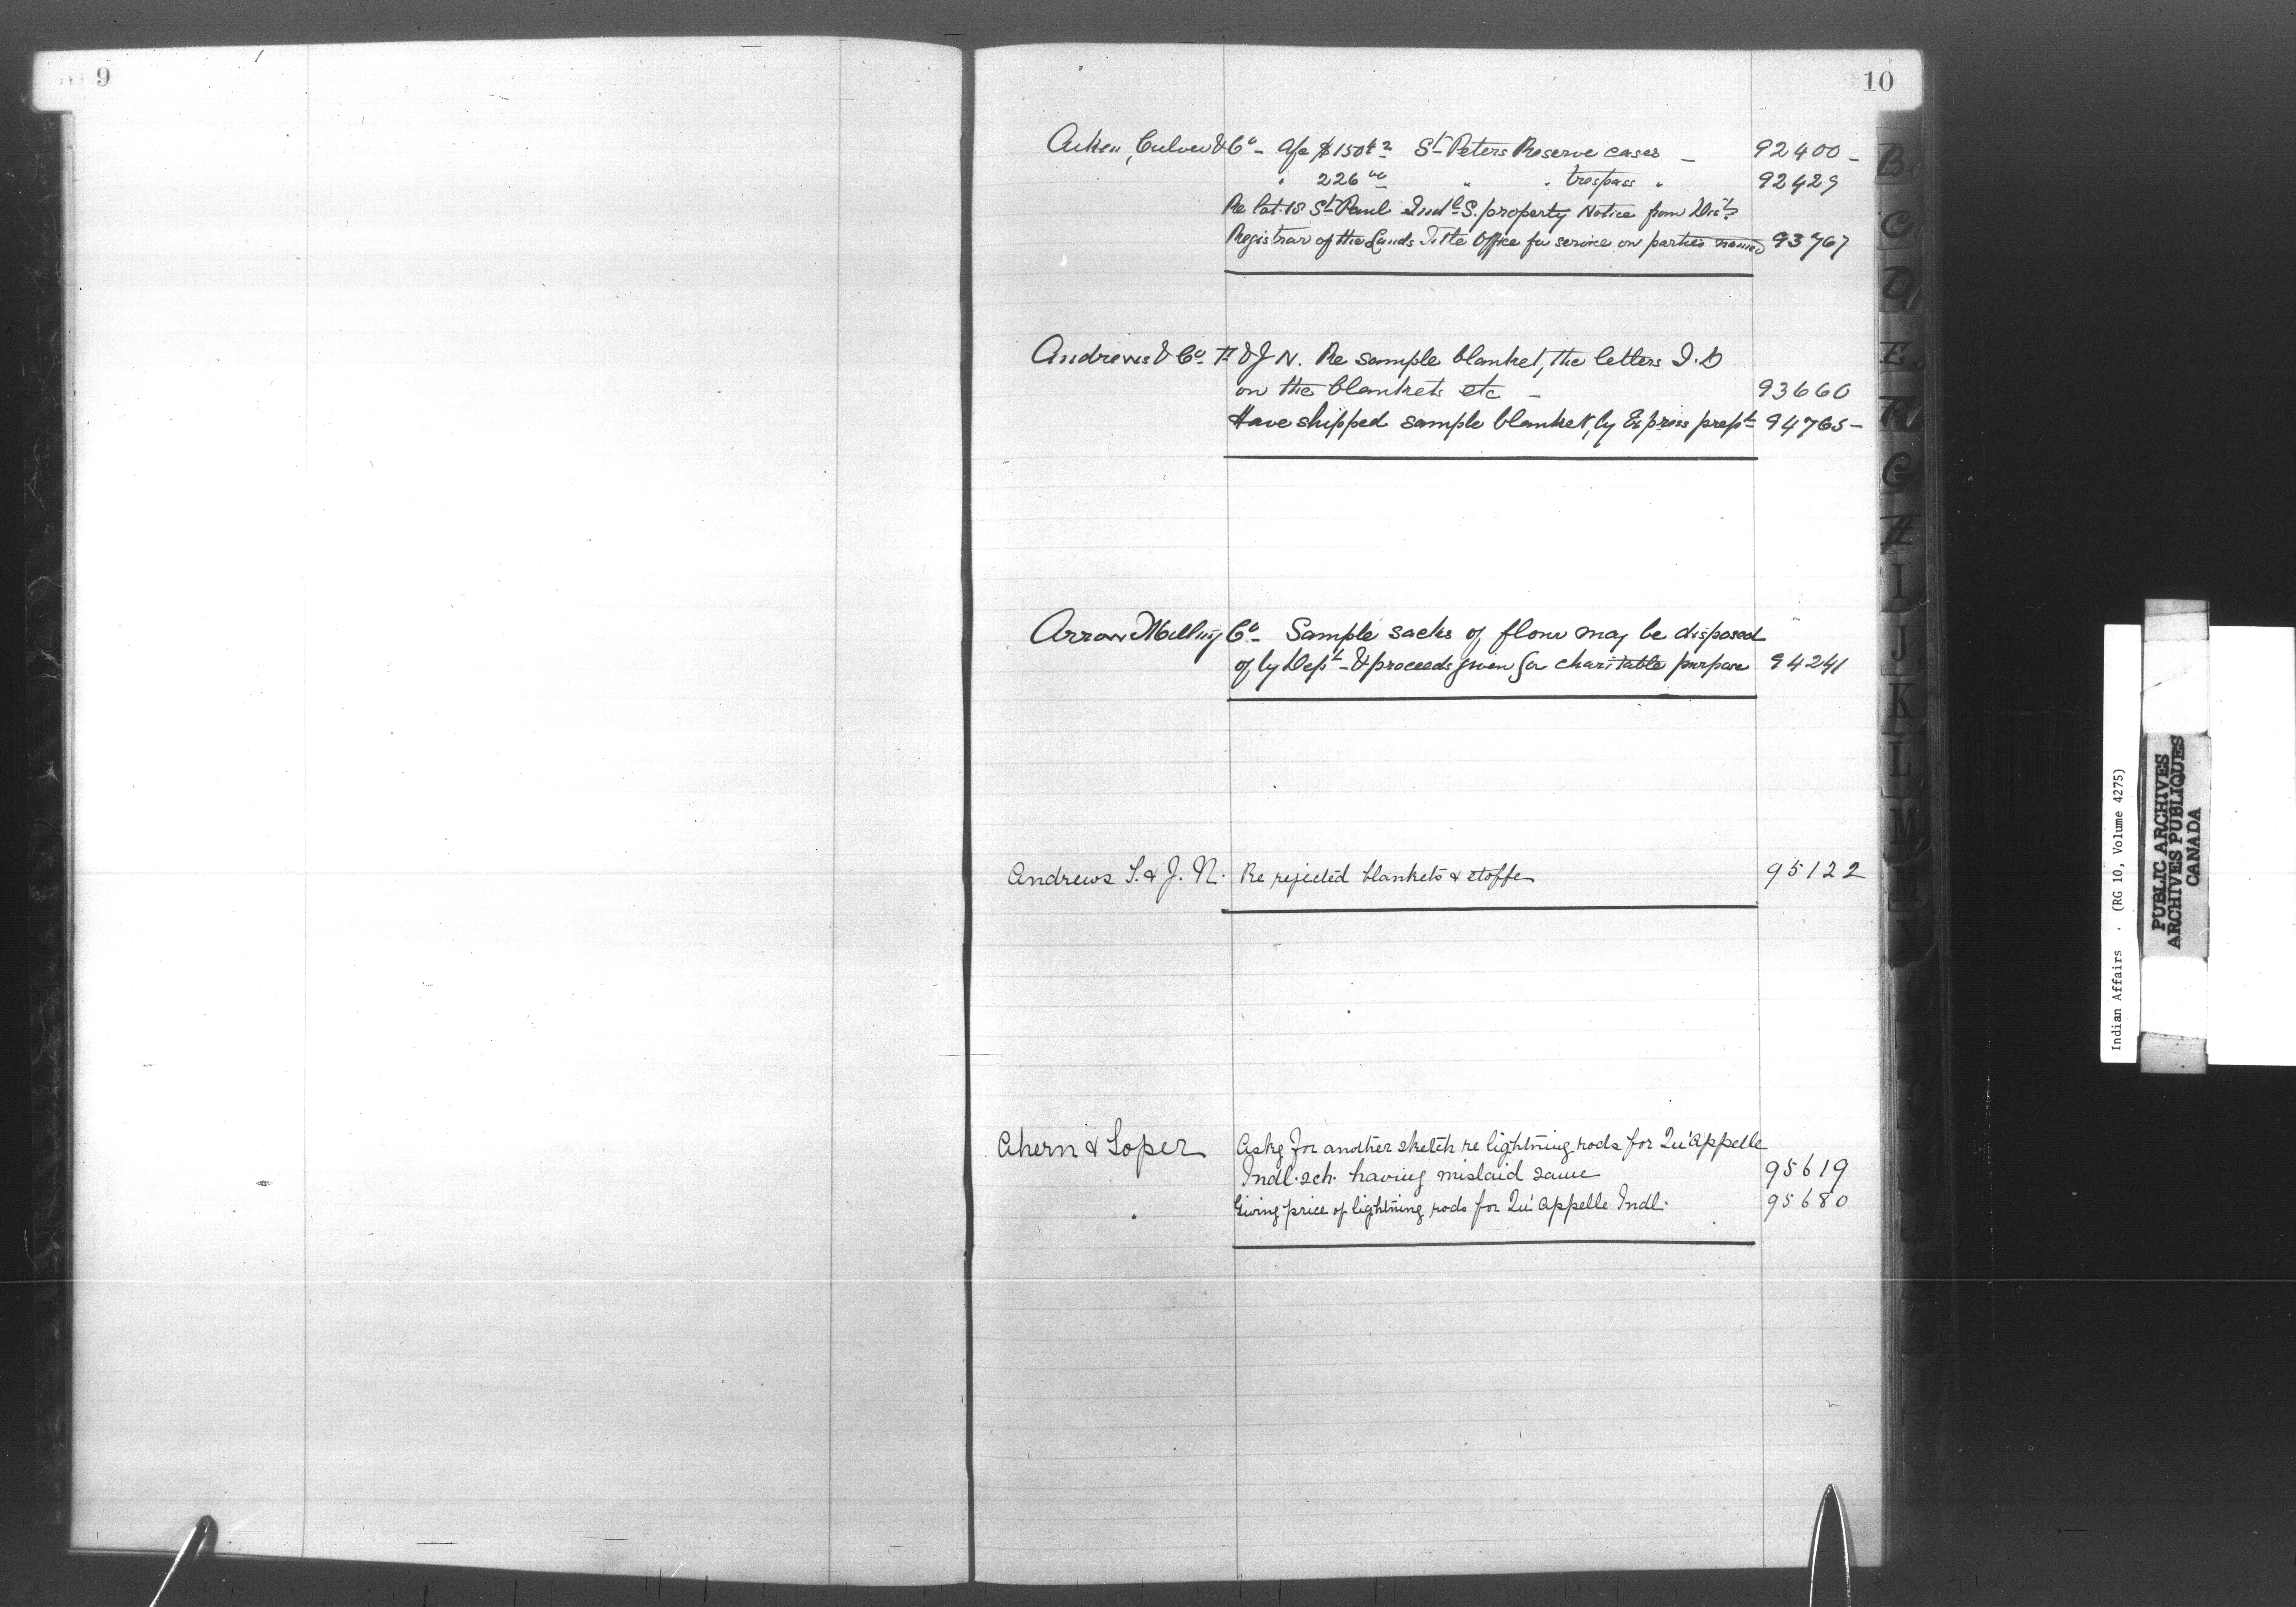 9
10
Aiken, Culver & Co - A/c $150 St Peters Reserve cases - 92400 -
" 226 00 " " trespass " 92429
Re lot 18 St Paul Indl S. property Notice from Dist
Registrar of the Lands Title Office for service on parties named 93767
Andrews & Co T & J N. Re sample blanket, the letters I.D
on the blankets etc - 93660
Have shipped sample blanket, by Express prept 94765 -
Arrow Milling Co - Sample sacks of flour may be disposed
of by Dept - & proceeds given for charitable purpose 94241
Andrews S. & J. N. Re rejected blankets & etoffe 95122
Ahern & Soper Askg for another sketch re lightning rods for Qu'appelle
Indl. sch. having mislaid same 95619
Giving price of lightning rods for Qu'appelle Indl. 95680
B
C
D
E
F
G
H
I
J
K
L
M
Indian Affairs . (RG 10, Volume 4275)
PUBLIC ARCHIVES
ARCHIVES PUBLIQUES
CANADA